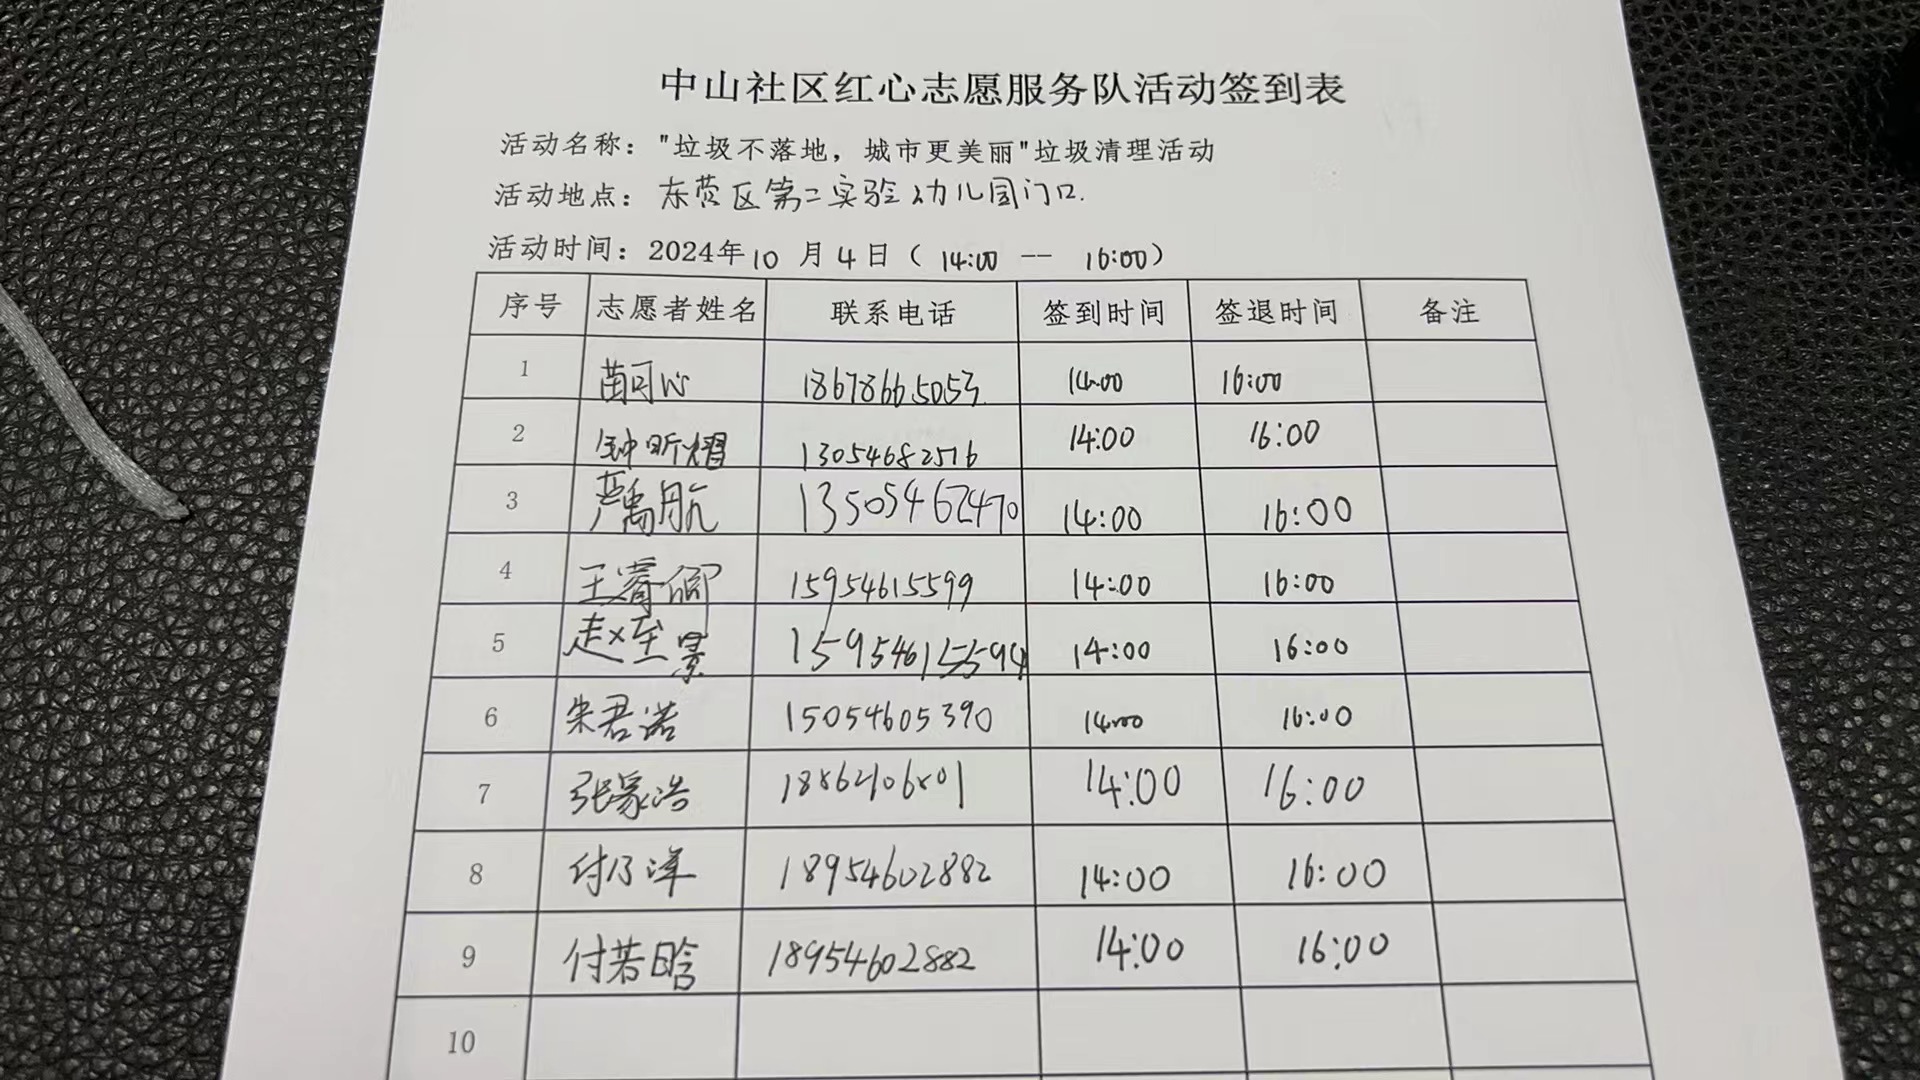 中山社区红心志愿服务队活动签到表
活动名称："垃圾不落地，城市更美丽"垃圾清理活动
活动地点：东营区第二实验幼儿园门口.
活动时间：2024年10月4日（14:00 -- 16:00）
序号 志愿者姓名 联系电话 签到时间 签退时间 备注
1 苗可心 18678665053 14:00 16:00
2 钟昕熠 13054682516 14:00 16:00
3 严禹航 13505462470 14:00 16:00
4 王睿 15954615599 14:00 16:00
5 赵至景 15954615594 14:00 16:00
6 朱君诺 15054605390 14:00 16:00
7 张家浩 14:00 16:00
8 付乃洋 18954602882 14:00 16:00
9 付若晗 18954602882 14:00 16:00
10